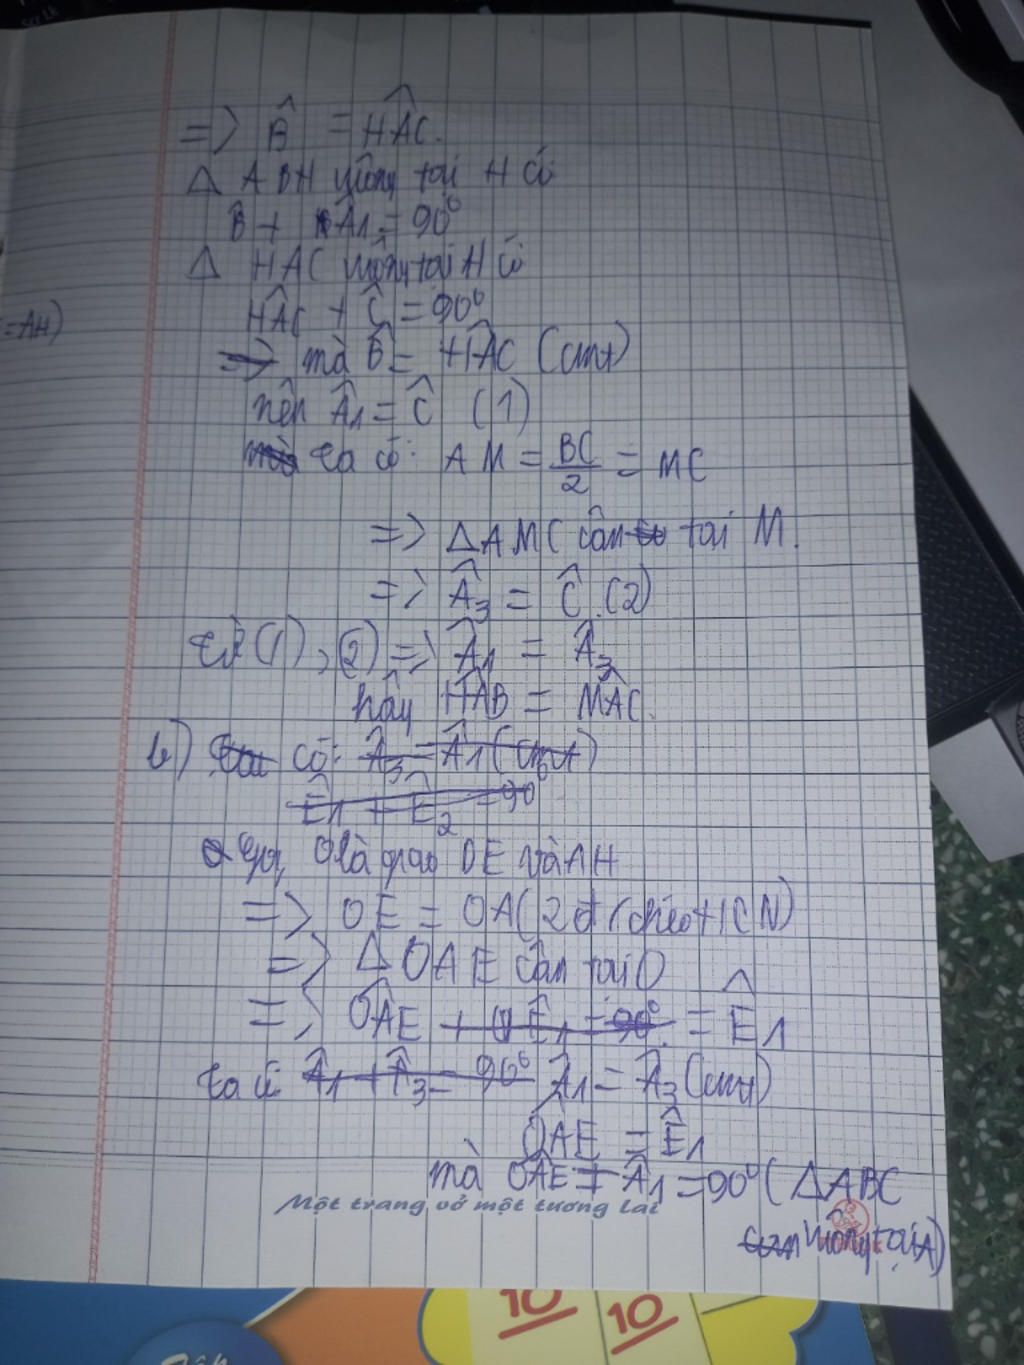 => B̂ = HÂC.
Δ ABH vuông tại H có
B̂ + Â1 = 90°
Δ HAC vuông tại H có
HÂC + Ĉ = 90°
=AH)
=> mà B̂ = HÂC (cmt)
nên Â1 = Ĉ (1)
mà ta có: AM = BC/2 = MC
=> ΔAMC cân tại M.
=> Â3 = Ĉ (2)
Từ (1), (2) => Â1 = Â3
hay HÂB = MÂC.
b) Ta có: Â3 = Â1 (cmt)
Ê1 + Ê2 = 90°
Gọi O là giao DE và AH
=> OE = OA (2 đ/chéo HCN)
=> Δ OAE cân tại O
=> OÂE + Ê1 = 90° = Ê1
ta có Â1 + Â3 = 90° Â1 = Â3 (cmt)
OÂE = Ê1
mà OÂE + Â1 = 90° (ΔABC
vuông tại A)
Một trang vở một tương lai
10 10